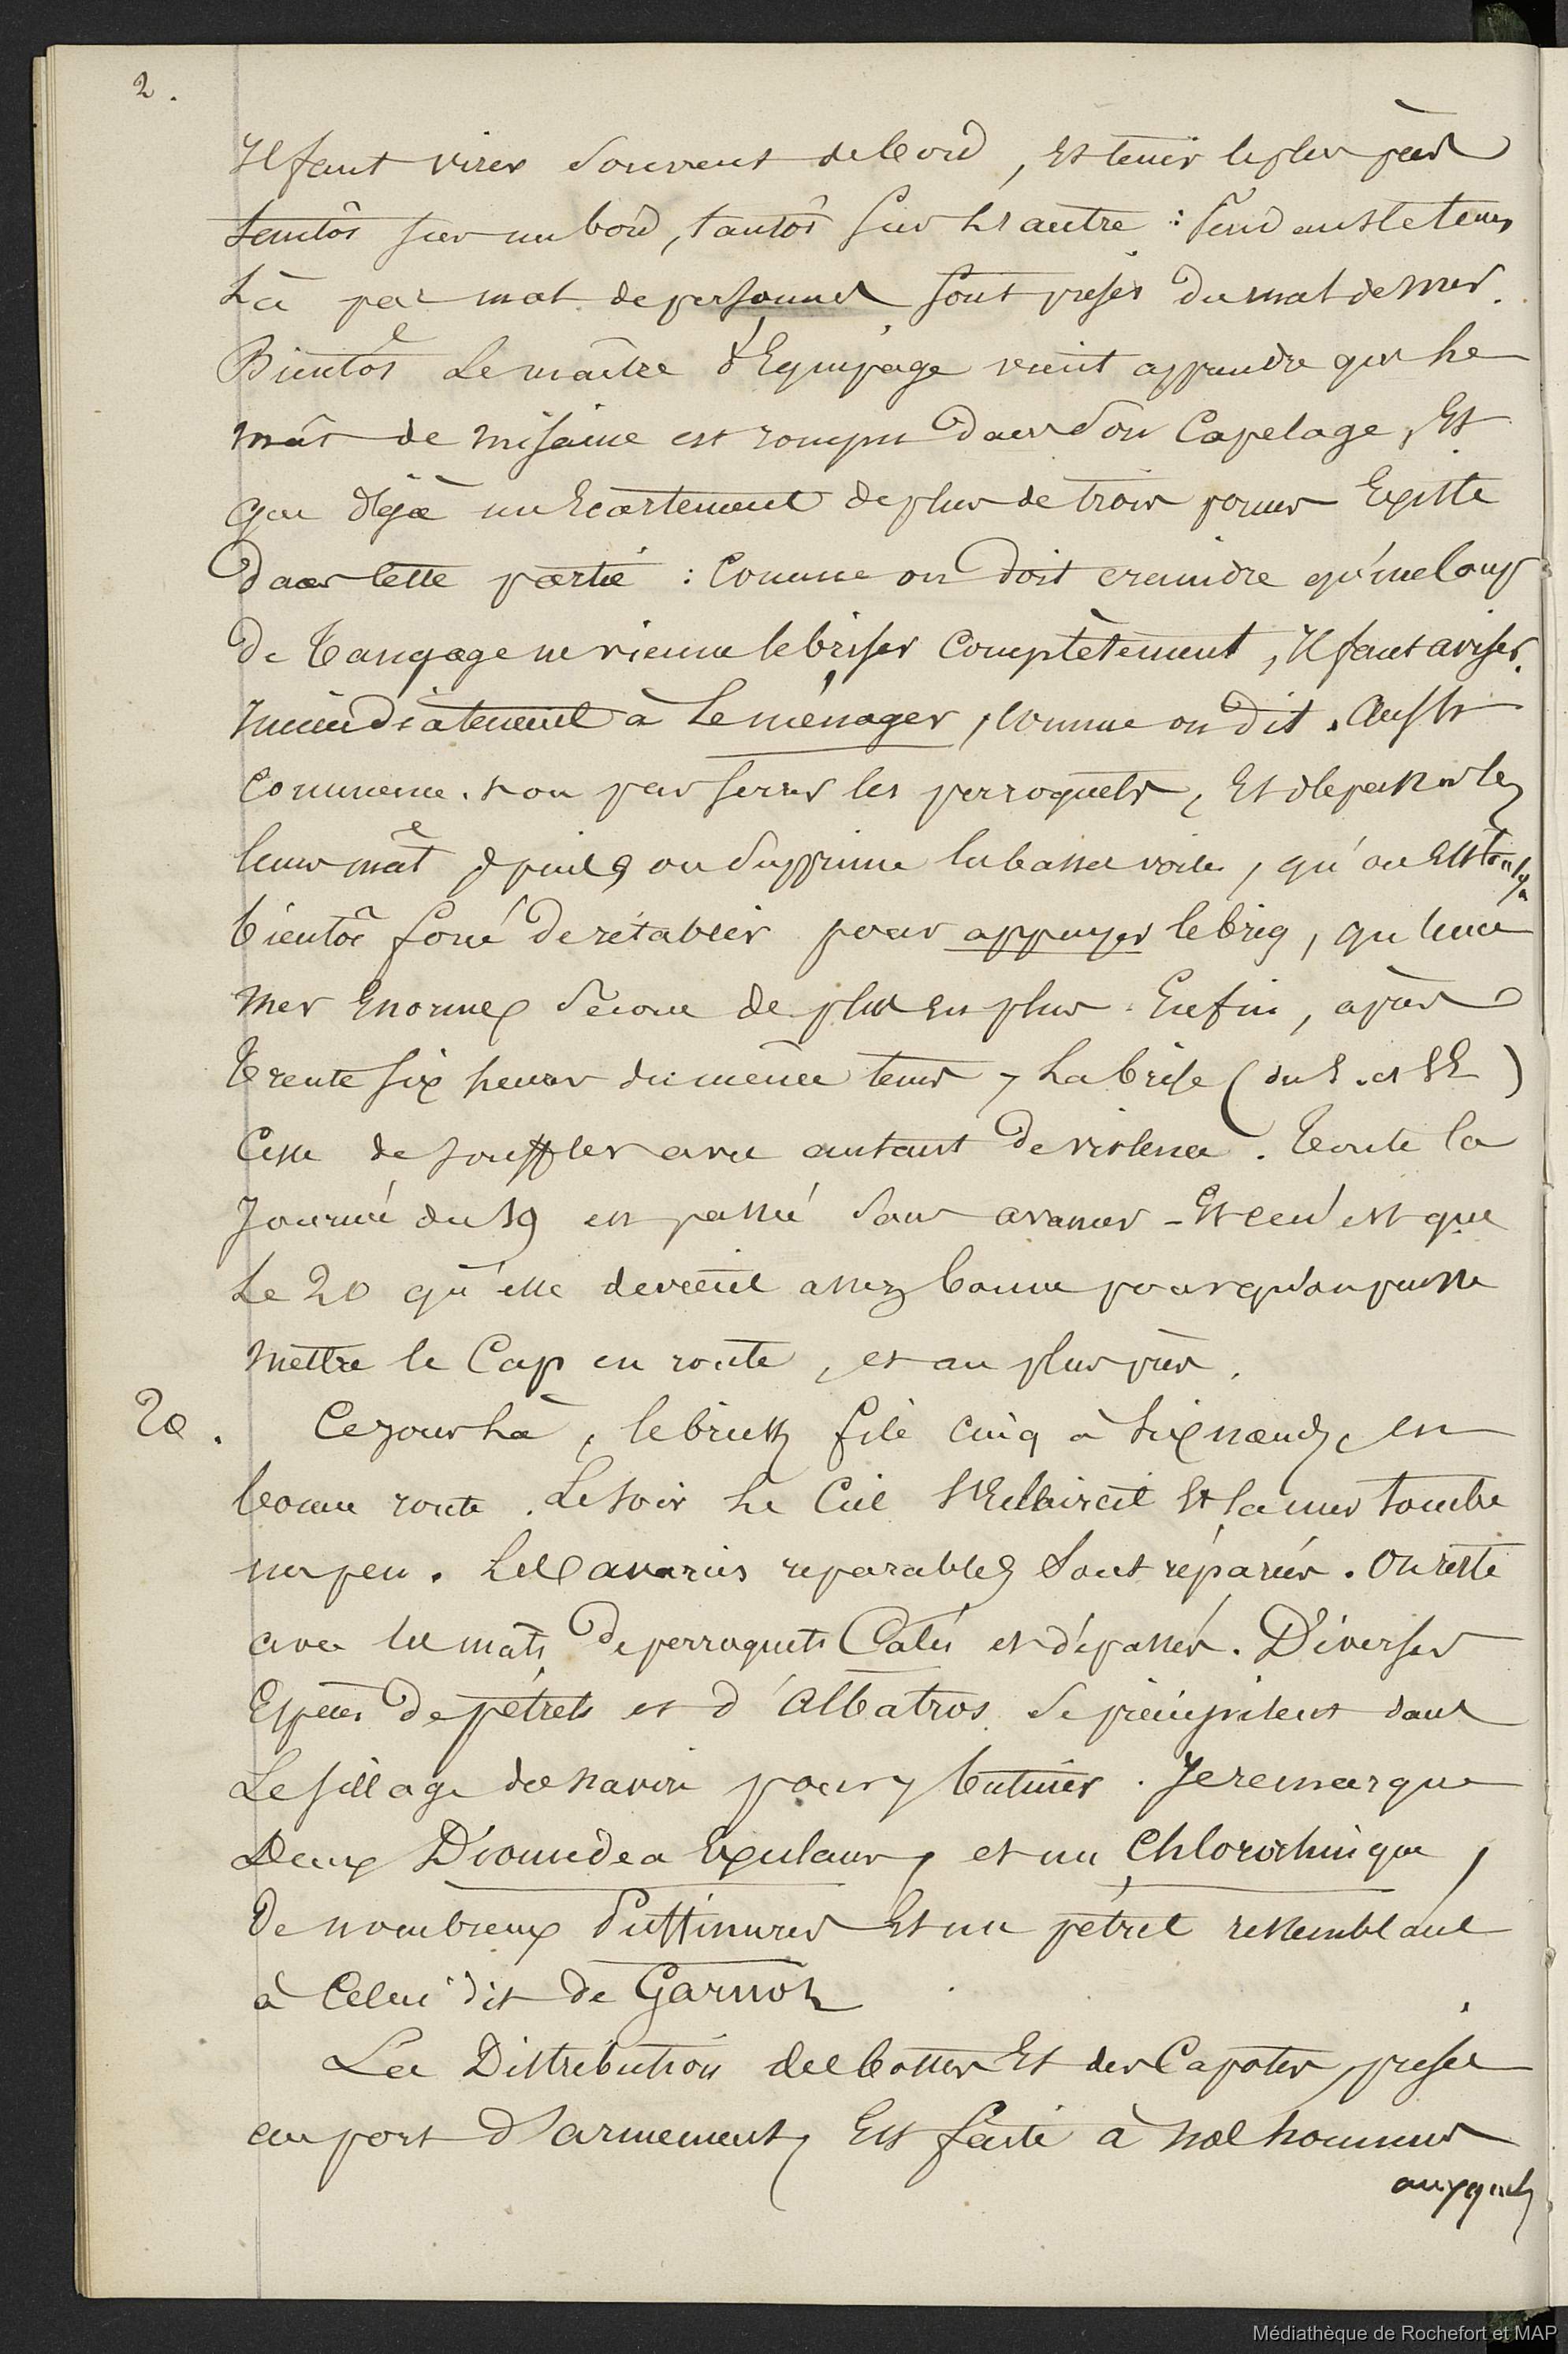 2.
Il faut virer souvent de bord, et tenir le plus près
tantôt sur un bord, tantôt sur l'autre : pendant ce tems
là pas mal de personnes sont prises du mal de mer.
Bientôt le maître d'Equipage vient apprendre que le
mât de misaine est rompu dans son Capelage, Et
que déjà un Ecartement de plus de trois pouces Existe
dans cette partie : Comme on doit craindre qu'un coup
de Tangage ne vienne le briser Complètement, Il faut aviser
Immédiatement à Le ménager, comme on dit. Aussi
Commence-t-on par serrer les perroquets, Et dépasser les
leurs mât & puis on supprime les basses voiles, qu'on Est
bientôt forcé de rétablir pour appuyer le brig, qu'une
mer Enorme secoue de plus En plus. Enfin, après
Trente six heures du même tems, La brise (du S. et SE)
Cesse de souffler avec autant de violence. Toute la
Journée du 19 est passée sans avancer - Et ce n'est que
Le 20 qu'elle devient assez bonne pour qu'on puisse
mettre le Cap en route, et au plus près.
20. Ce jour là, le brick file cinq à six nœuds, en
bonne route. Le soir Le Ciel S'Eclaircit Et la mer tombe
un peu. Les avaries reparables sont réparées. On reste
avec les mâts de perroquets Calés et dépassés. Diverses
Espèces de pétrels et d'Albatros se précipitent dans
Le sillage du navire pour y butiner. Je remarque
Deux Diomedea Exulans, et un Chlororhinque,
De nombreux Puffinures Et un pétrel ressemblant
à Celui dit de Garnot
La Distribution des bottes Et des Capotes, prises
au port d'armement, Est faite à nos hommes
auxquels
Médiathèque de Rochefort et MAP